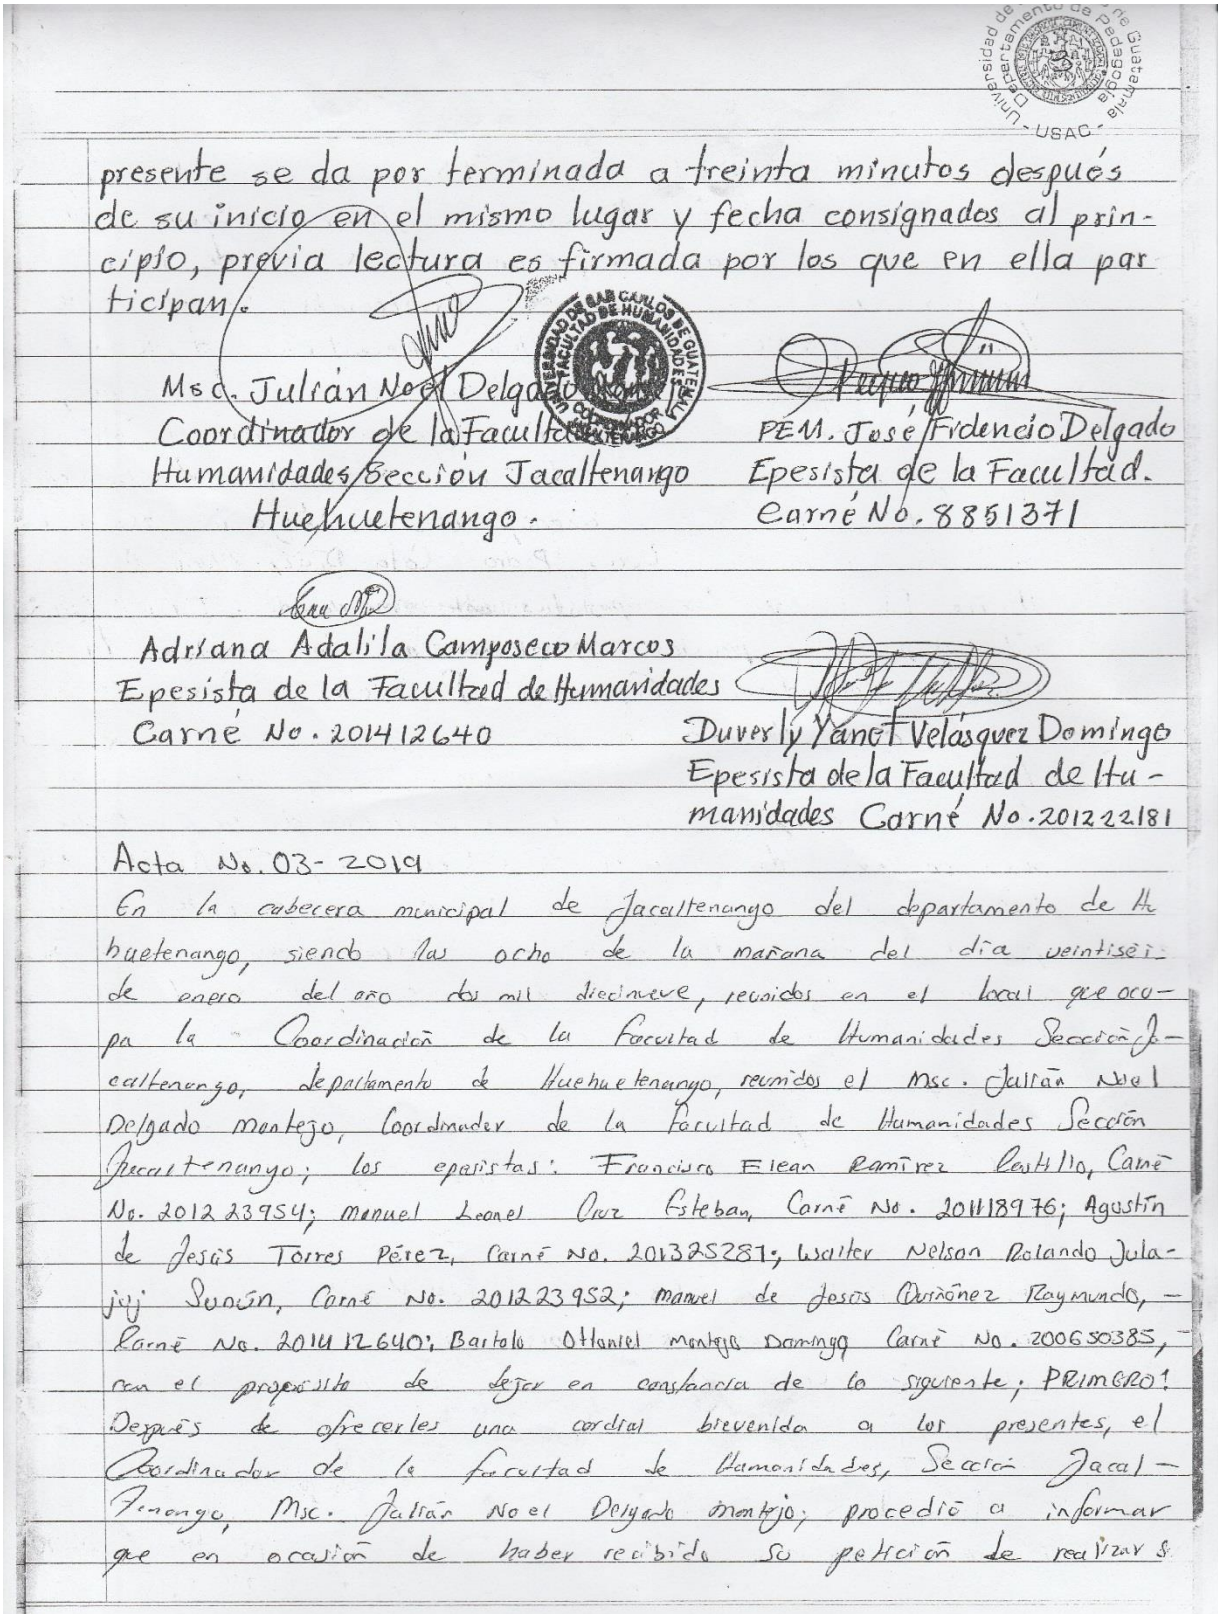 Universidad de Guatemala
Departamento de Pedagogía
- USAC -
presente se da por terminada a treinta minutos después
de su inicio en el mismo lugar y fecha consignados al prin-
cipio, previa lectura es firmada por los que en ella par
ticipan.
UNIVERSIDAD DE SAN CARLOS DE GUATEMALA
FACULTAD DE HUMANIDADES
COORDINADOR
Msc. Julián Noel Delgado
Coordinador de la Faculta
PEM. José Fidencio Delgado
Humanidades Sección Jacaltenango
Epesista de la Facultad.
Huehuetenango.
Carné No. 8851371
Adriana Adalila Camposeco Marcos
Epesista de la Facultad de Humanidades
Carné No. 201412640
Duverly Yanet Velásquez Domingo
Epesista de la Facultad de Hu-
manidades Carné No. 201222181
Acta No. 03- 2019
En la cabecera municipal de Jacaltenango del departamento de H
huetenango, siendo las ocho de la mañana del día veintisei
de enero del año dos mil diecinueve, reunidos en el local que ocu-
pa la Coordinación de la Facultad de Humanidades Sección Ja-
caltenango, departamento de Huehuetenango, reunidos el Msc. Julián Noel
Delgado Montejo, Coordinador de la Facultad de Humanidades Sección
Jacaltenango; los epesistas: Francisco Elean Ramírez Castillo, Carné
No. 201223954; Manuel Leonel Cruz Esteban, Carné No. 201118976; Agustín
de Jesús Torres Pérez, Carné No. 201325287; Walter Nelson Rolando Jula-
juj Sunún, Carné No. 201223952; Manuel de Jesús Quiñónez Raymundo, -
Carné No. 201412640; Bartolo Ottoniel Montejo Domingo Carné No. 200650385, -
con el propósito de dejar en constancia de lo siguiente; PRIMERO:
Después de ofrecerles una cordial bievenida a los presentes, el
Coordinador de la facultad de Humanidades, Sección Jacal-
Tenango, Msc. Julián Noel Delgado Montejo; procedió a informar
que en ocasión de haber recibido su petición de realizar s